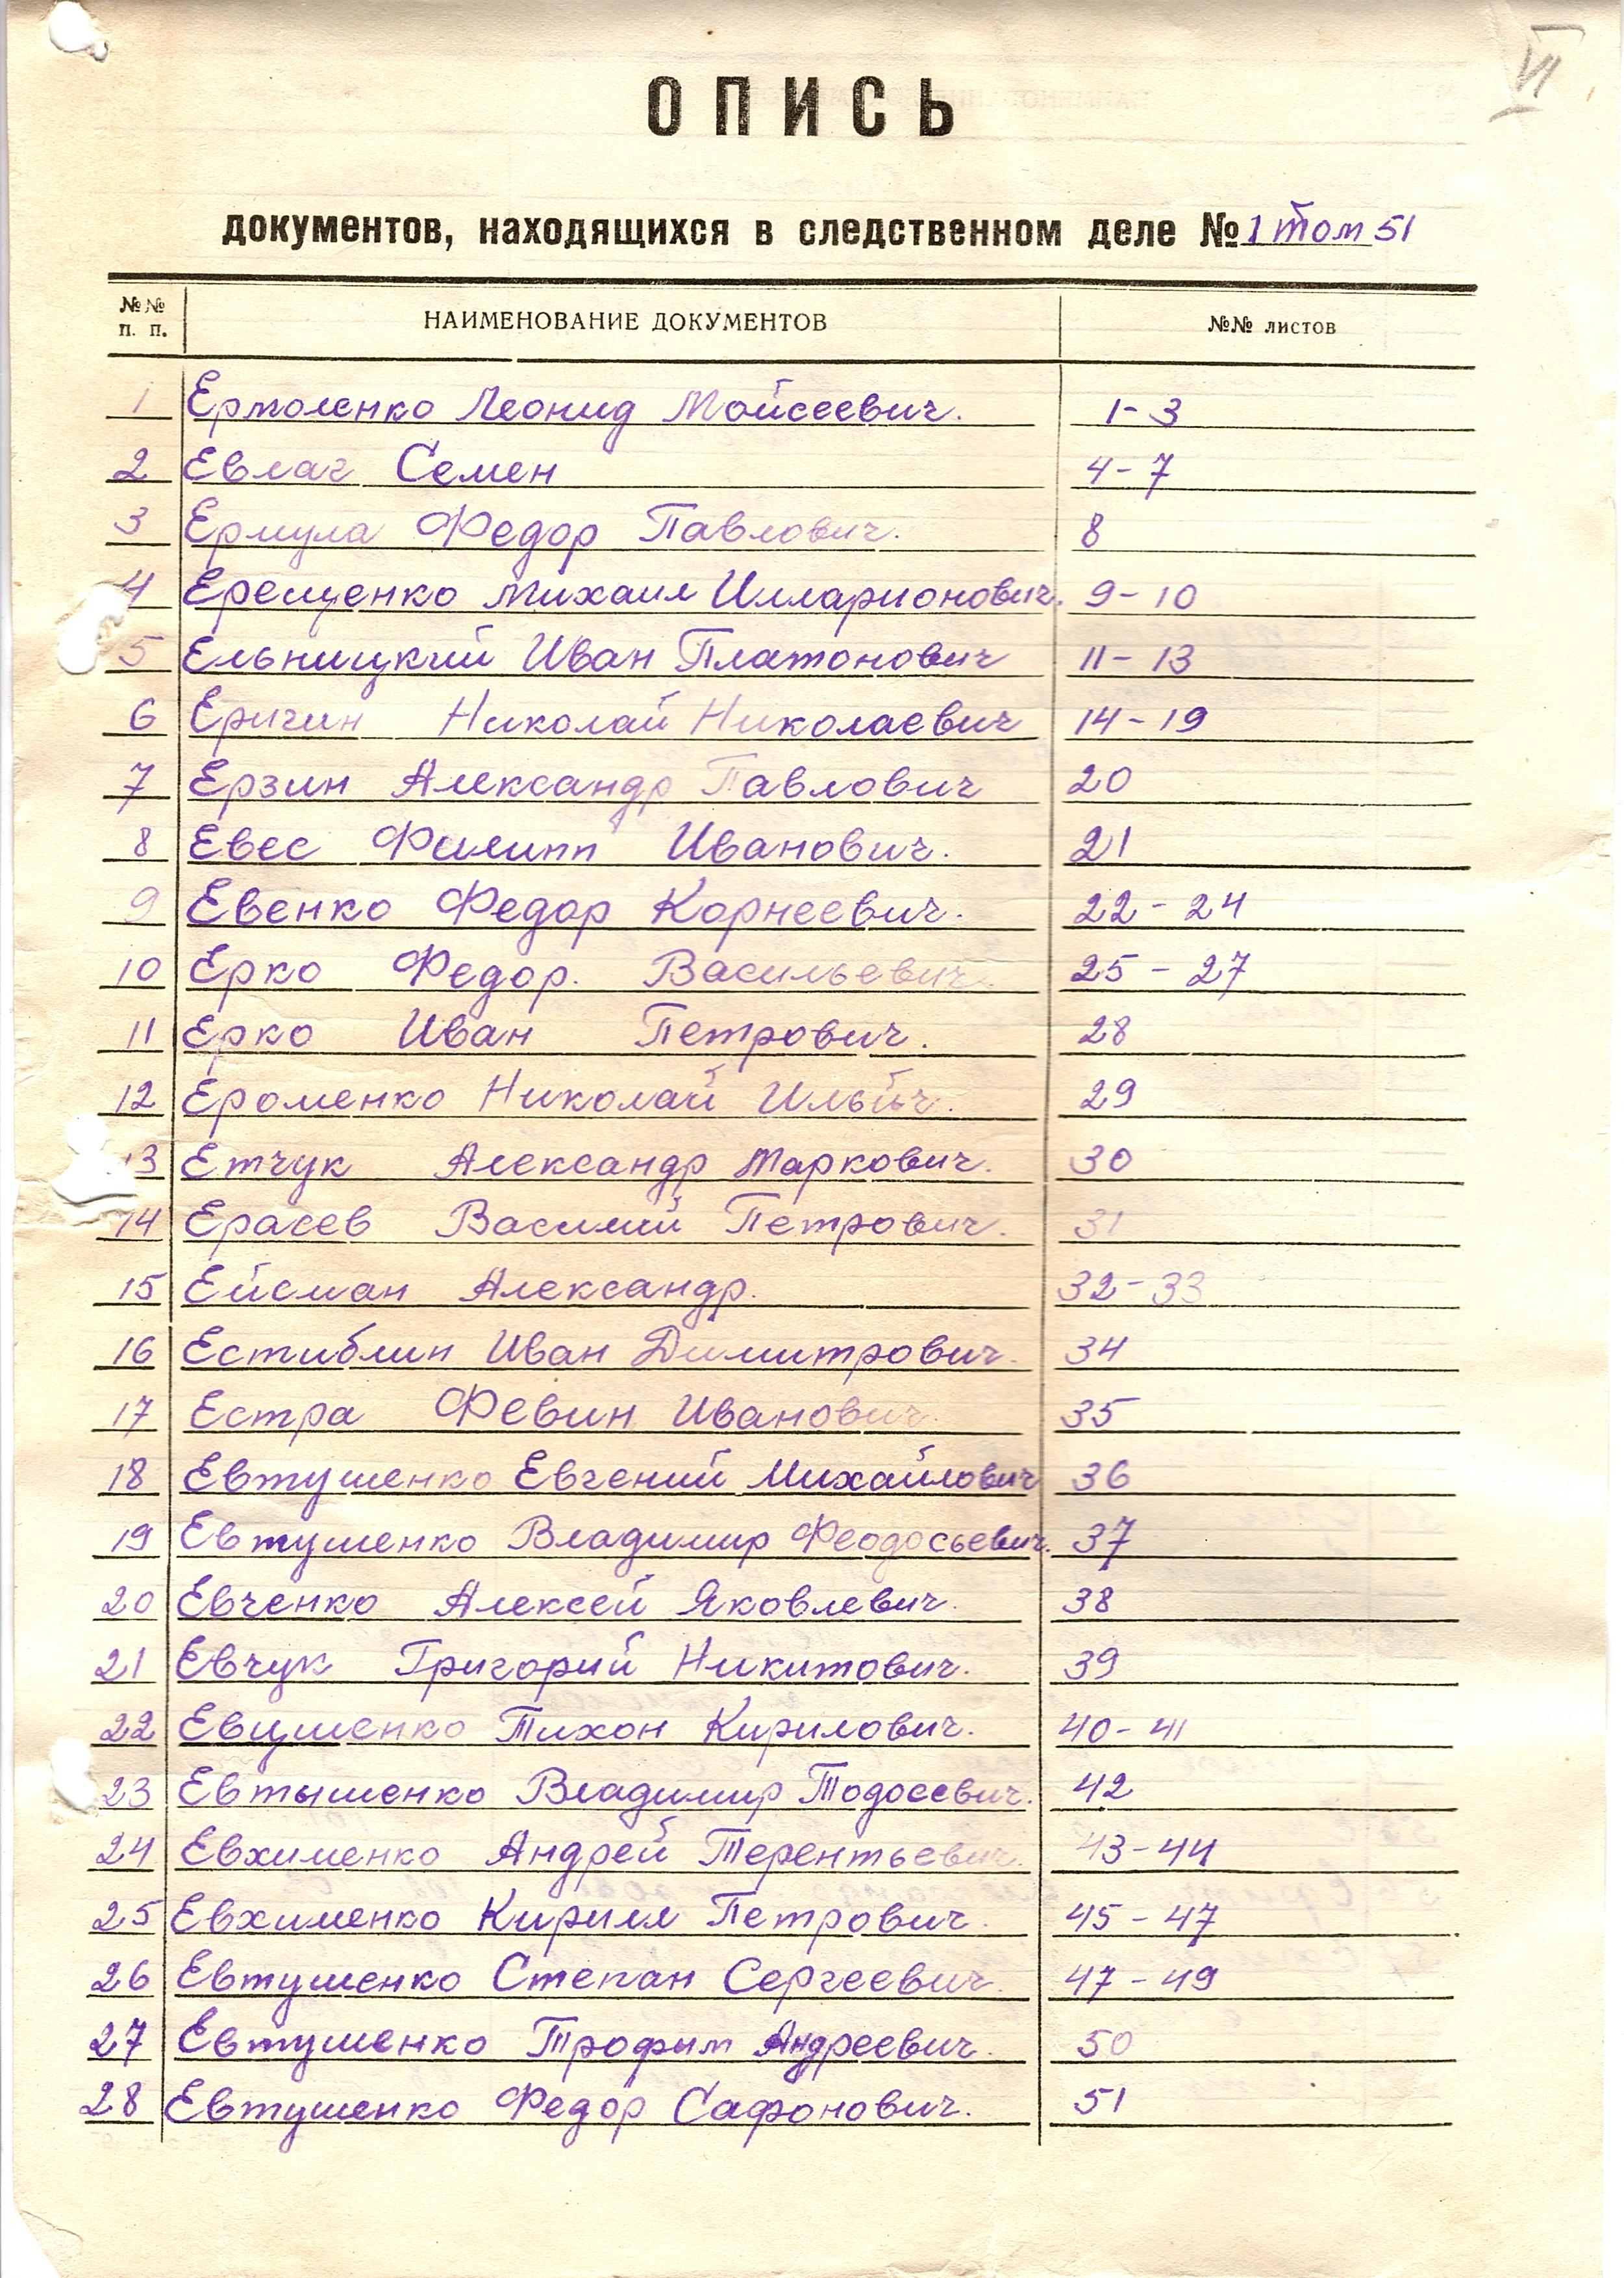 VI
ОПИСЬ
документов, находящихся в следственном деле № 1 том 51
№№ п. п. НАИМЕНОВАНИЕ ДОКУМЕНТОВ №№ листов
1 Ермоленко Леонид Мойсеевич. 1-3
2 Евлаг Семен 4-7
3 Ермула Федор Павлович. 8
4 Ерещенко Михаил Илларионович. 9-10
5 Ельницкий Иван Платонович 11-13
6 Еричин Николай Николаевич 14-19
7 Ерзин Александр Павлович 20
8 Евес Филипп Иванович. 21
9 Евенко Федор Корнеевич. 22-24
10 Ерко Федор. Васильевич. 25-27
11 Ерко Иван Петрович. 28
12 Ероменко Николай Ильйч. 29
13 Етчук Александр Маркович. 30
14 Ерасев Василий Петрович. 31
15 Ейсман Александр. 32-33
16 Естиблин Иван Димитрович. 34
17 Естра Февин Иванович. 35
18 Евтушенко Евгений Михайлович 36
19 Евтушенко Владимир Феодосьевич. 37
20 Евченко Алексей Яковлевич. 38
21 Евчук Григорий Никитович. 39
22 Евцшенко Тихон Кирилович. 40-41
23 Евтышенко Владимир Тодосевич. 42
24 Евхименко Андрей Терентьевич. 43-44
25 Евхименко Кирилл Петрович. 45-47
26 Евтушенко Степан Сергеевич. 47-49
27 Евтушенко Трофим Андреевич. 50
28 Евтушенко Федор Сафонович. 51